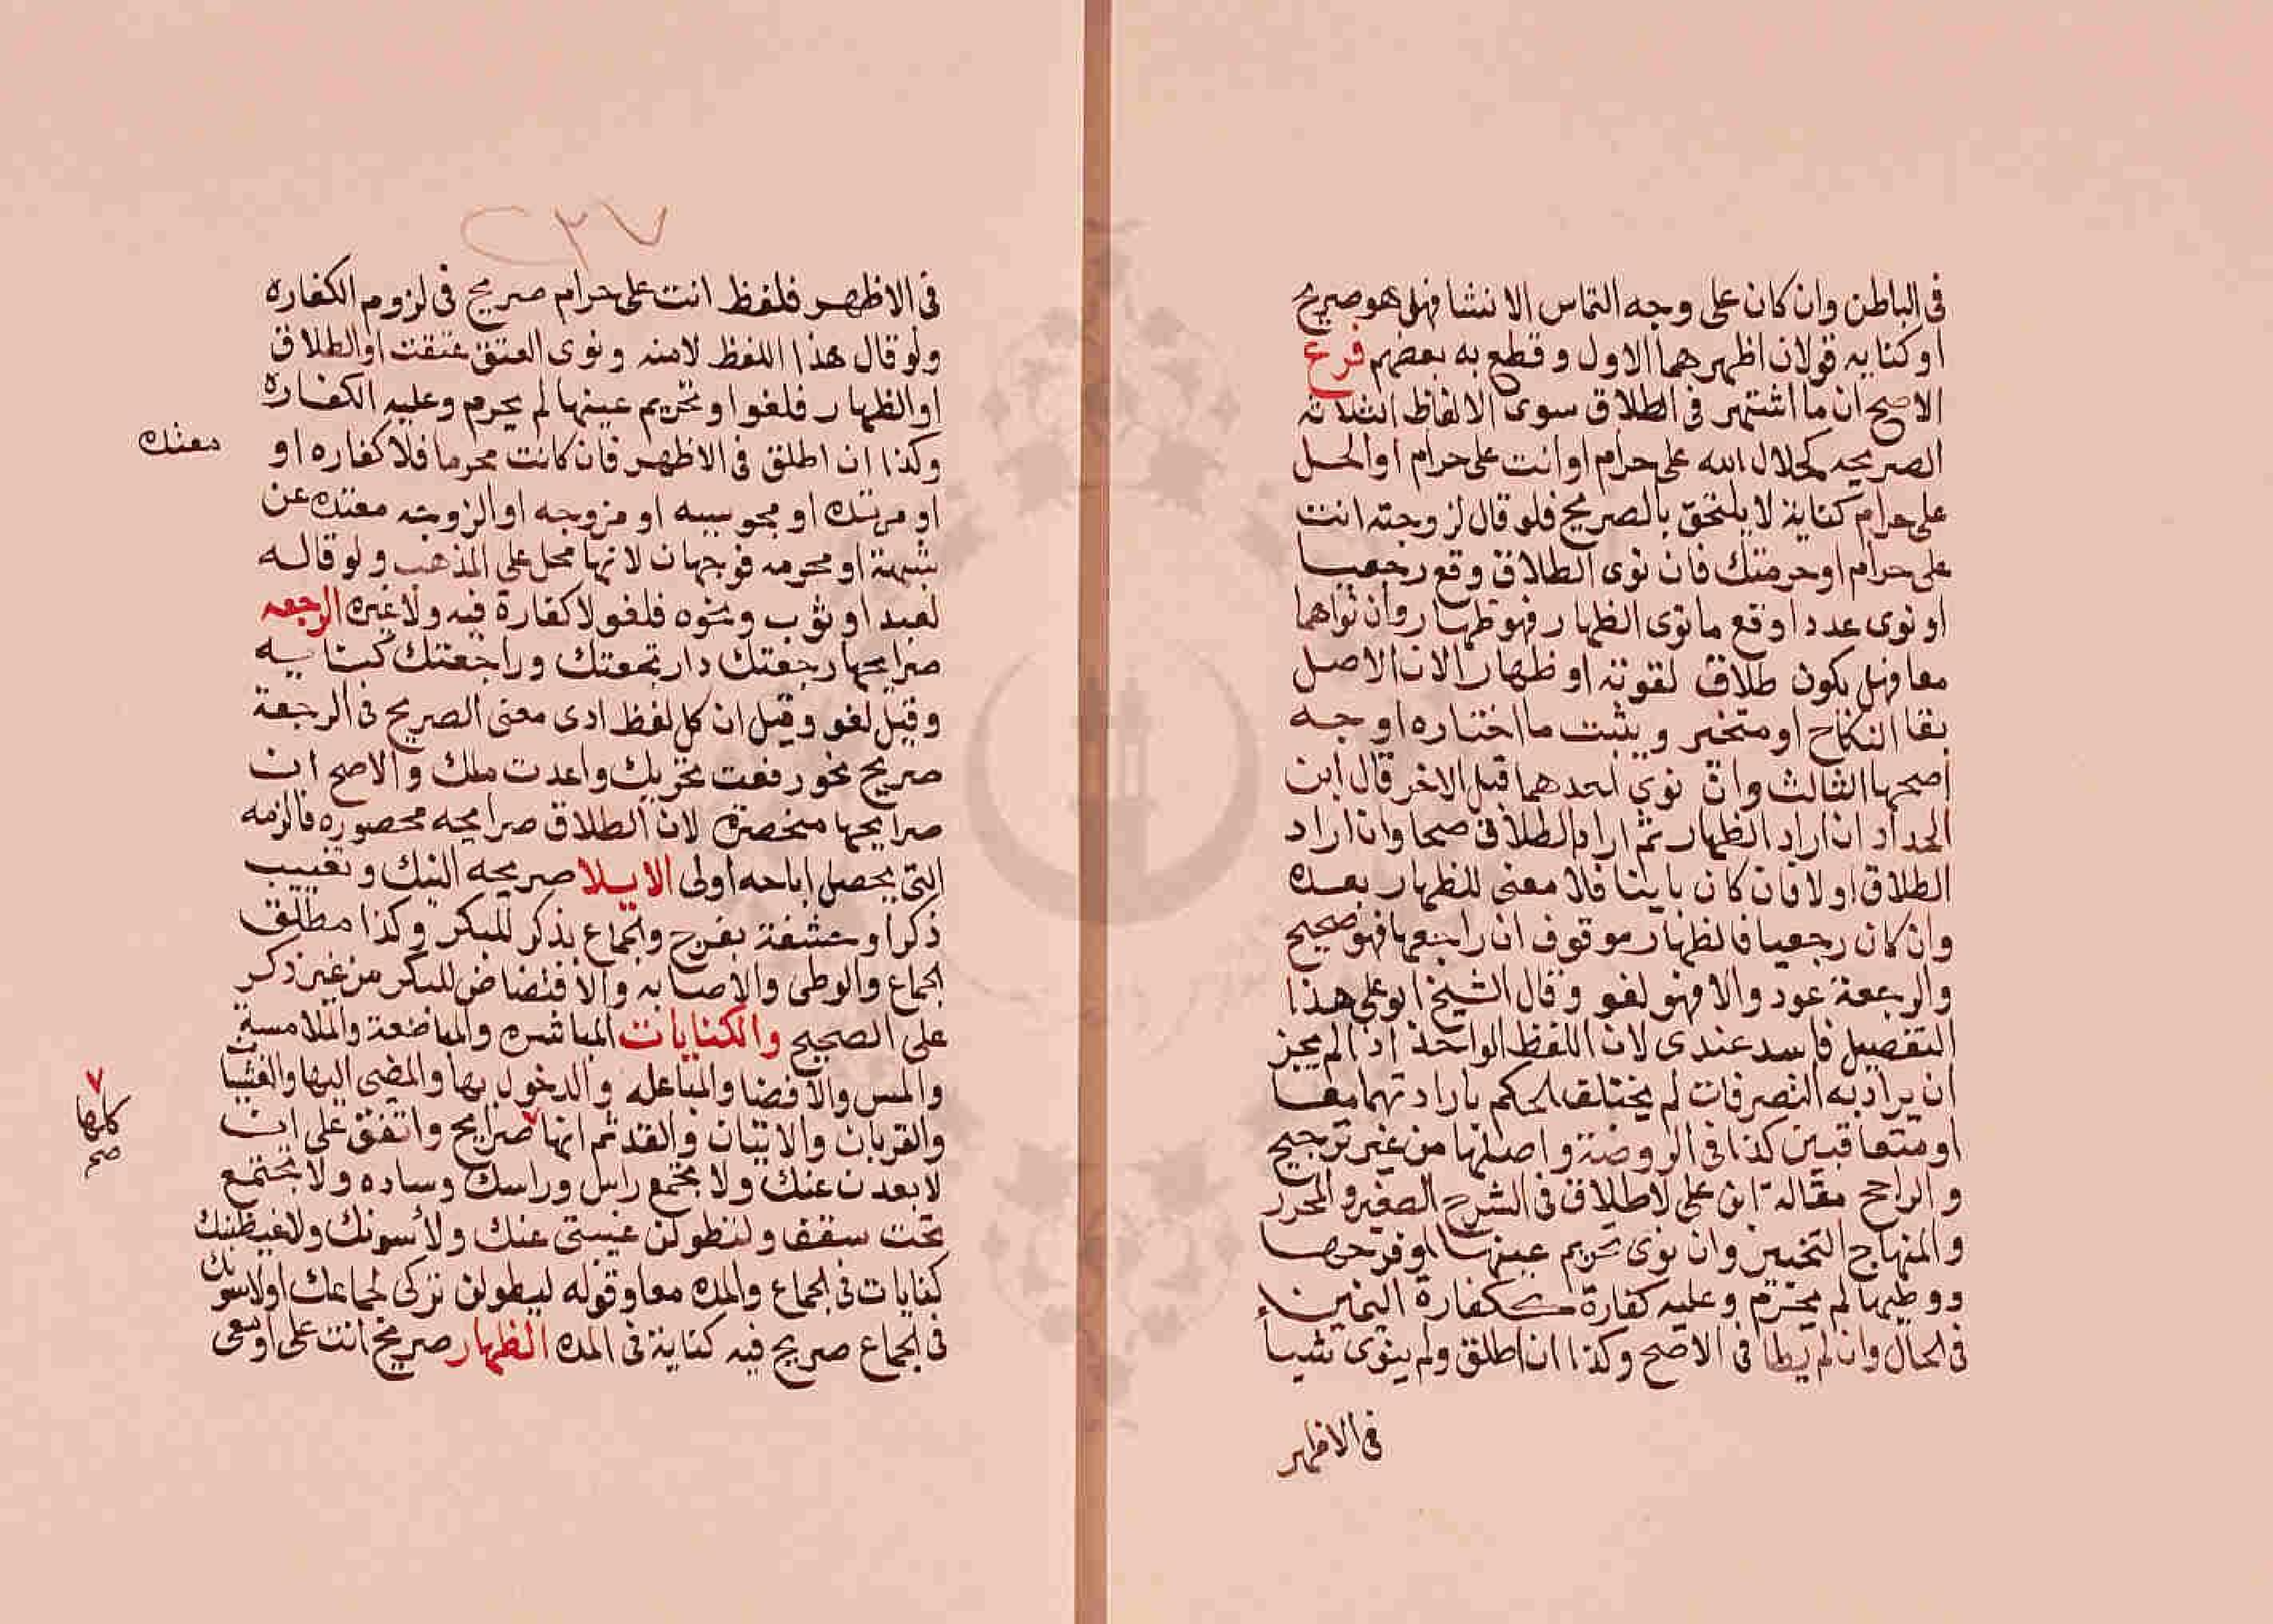 في الباطن وان كان على وجه التماس الانشا فهل هو صريح
او كنايه قولان اظهرهما الاول وقطع به بعضهم فرع
الاصح ان ما اشتهر في الطلاق سوى الالفاظ الثلاثه
الصريحه كحلال الله على حرام او انت على حرام او الحل
على حرام كناية لا يلتحق بالصريح فلو قال لزوجته انت
على حرام او حرمتك فان نوى الطلاق وقع رجعيا
او نوى عددا وقع ما نوى الظهار فهو ظهار وان نواهما
معا فهل يكون طلاق لقوته او ظهارا لان الاصل
بقا النكاح او متخير ويثبت ما اختاره اوجه
اصحها الثالث وان نوى احدهما قبل الاخر قال ابن
الحداد ان اراد الظهار ثم اراد الطلاق صحا وان اراد
الطلاق اولا فان كان باينا فلا معنى للظهار بعده
وان كان رجعيا فالظهار موقوف ان راجعها فهو صحيح
والرجعة عود والا فهو لغو وقال الشيخ ابو على هذا
التفصيل فاسد عندى لان اللفظ الواحد اذا لم يجز
ان يراد به التصرفات لم يختلف الحكم بارادتهما معا
او متعاقبين كذا في الروضة واصلها من غير ترجيح
والراجح مقالة ابن على لاطلاق في الشرح الصغير والمحرر
والمنهاج التخيير وان نوى تحريم عينها او فرجها
ووطيها لم يحرم وعليه كفارة ككفارة اليمين
في الحال وان لم يطا في الاصح وكذا ان اطلق ولم ينوى شيا
في الاظهر
٢٣٧
في الاظهر فلفظ انت على حرام صريح في لزوم الكفاره
ولو قال هذا اللفظ لامته ونوى العتق عتقت او الطلاق
او الظهار فلغوا وتحريم عينها لم يحرم وعليه الكفارة
وكذا ان اطلق في الاظهر فان كانت محرما فلا كفاره او
معتده
او مرتده او مجوسيه او مزوجه او الزوجه معتده عن
شبهة او محرمه فوجهان لانها محل على المذهب ولو قاله
لعبد او ثوب ونحوه فلغو لا كفارة فيه ولا غيره الرجعه
صرايحها رجعتك وارتجعتك وراجعتك كنايه
وقيل لغو وقيل ان كل لفظ ادى معنى الصريح في الرجعة
صريح نحو رفعت تحريمك واعدت حلك والاصح ان
صرايحها منحصرة لان الطلاق صرايحه محصوره فالرجعه
التي يحصل اباحه اولى الايلا صريحه النيك وتغييب
ذكر او حشفة بفرج والجماع بذكر للبكر وكذا مطلق
الجماع والوطى والاصابه والافتضاض للبكر من غير ذكر
على الصحيح والكنايات المباشره والمباضعة والملامسة
والمس والافضا والمباعله والدخول بها والمضى اليها والغشيان
والقربان والاتيان والقد ثم انها صرايح واتفق على ان
٧
كلها
صح
لا بعدن عنك ولا يجتمع راس وراسك وساده ولا يجتمع
تحت سقف ولتطولن غيبتى عنك ولاسونك ولاغيظنك
كنايات في الجماع والمده معا وقوله ليطولن تركى لجماعك او لاسونك
في الجماع صريح فيه كناية في المده الظهار صريح انت على او معى